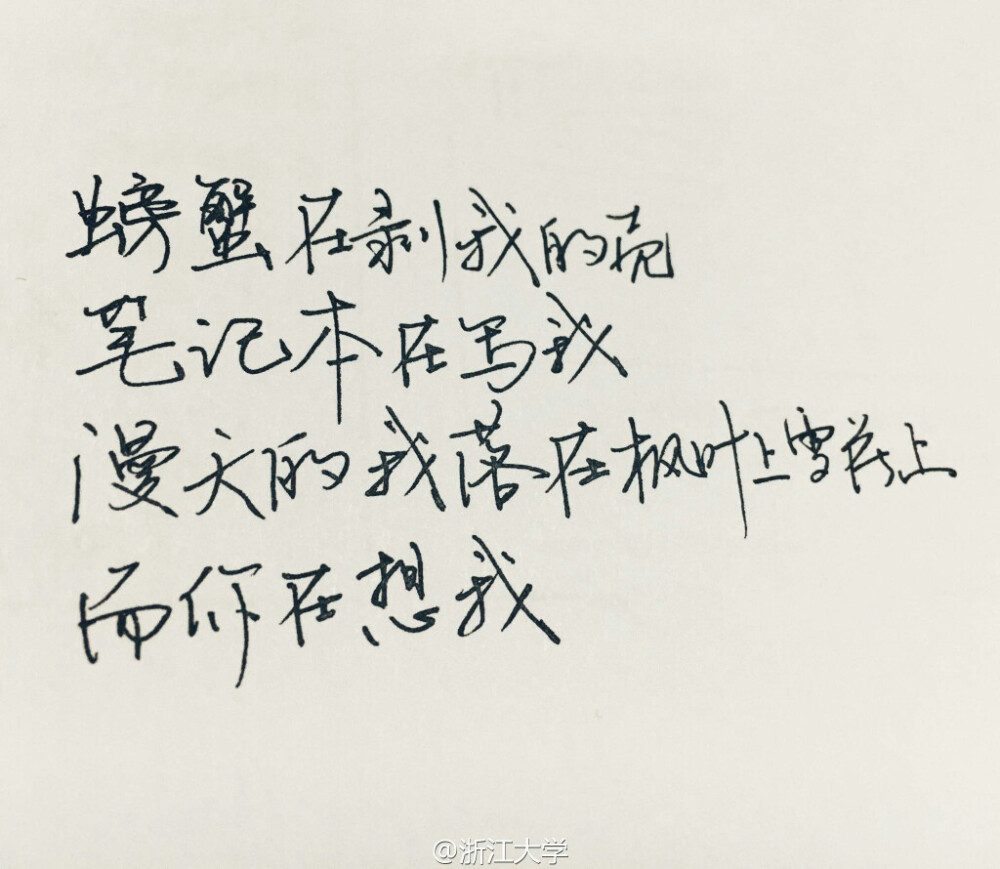 螃蟹在剥我的壳
笔记本在写我
漫天的我落在枫叶上雪花上
而你在想我
@浙江大学